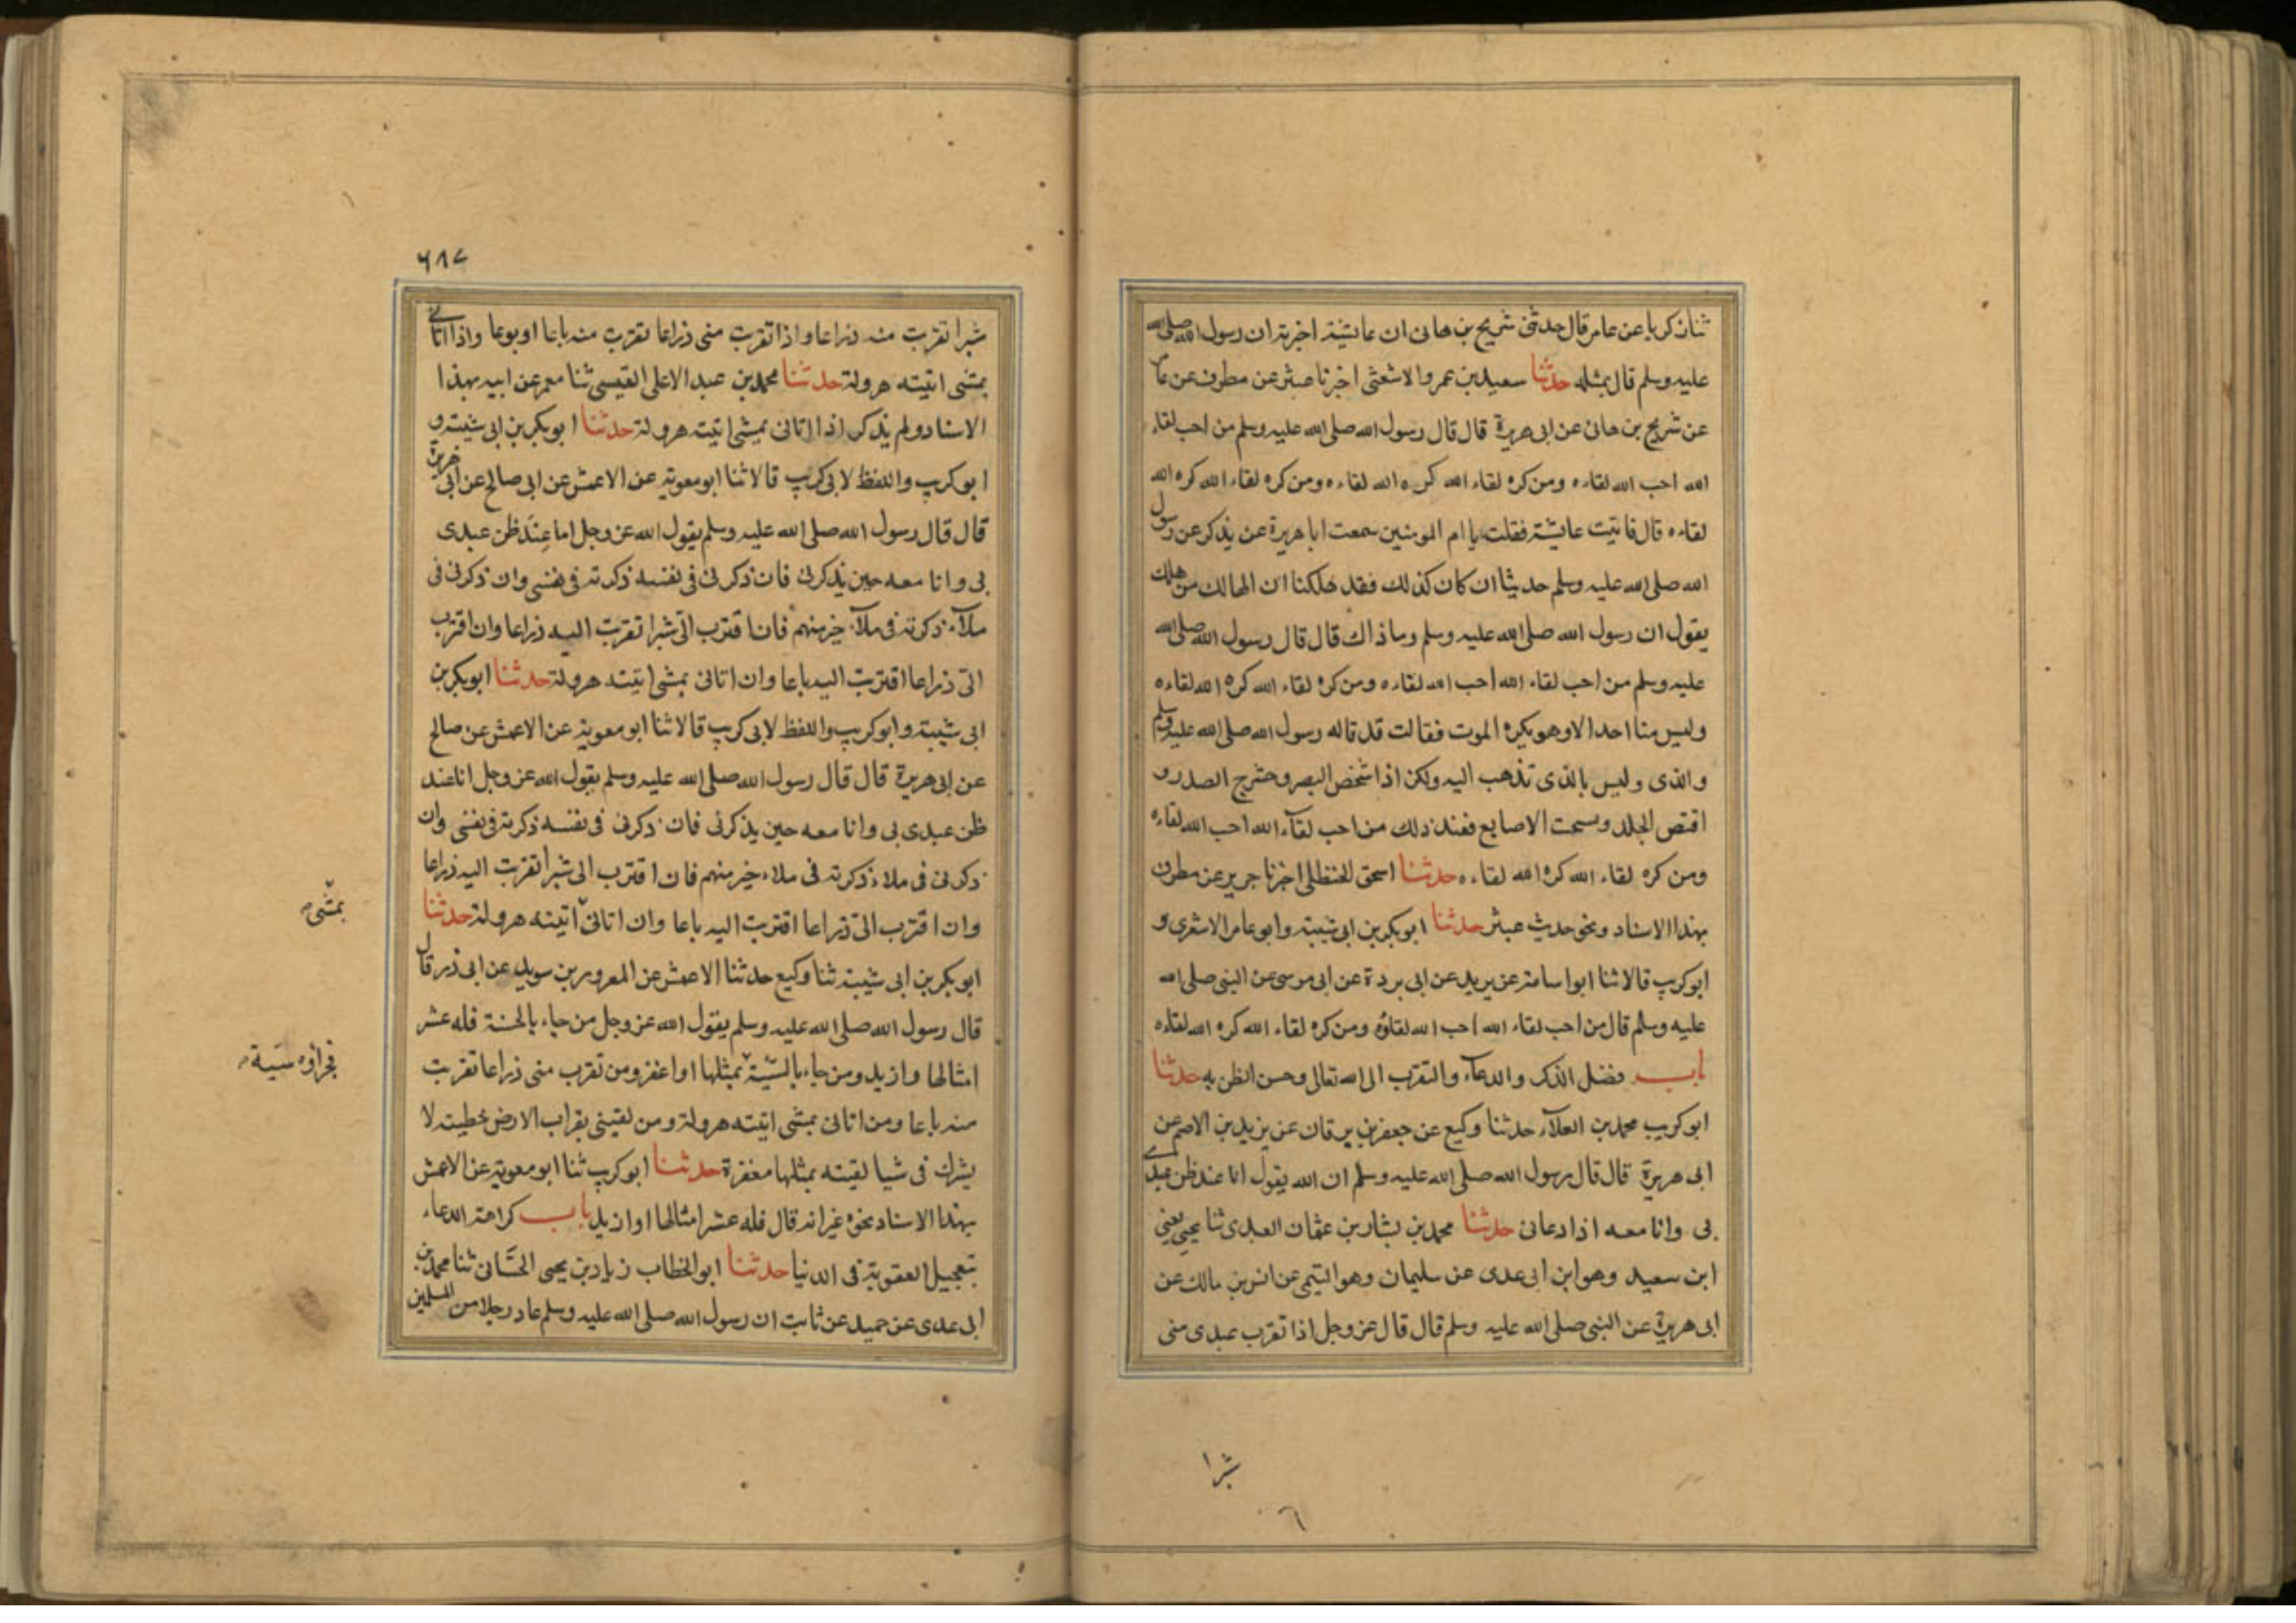 ثنا زكريا عن عامر قال حدثنى شريح بن هانى ان عايشة اخبرته ان رسول الله صلى الله
عليه وسلم قال بمثله حدثنا سعيد بن عمرو الاشعثى اخبرنا عبثر عن مطرف عن عامر
عن شريح بن هانى عن ابى هريرة قال قال رسول الله صلى الله عليه وسلم من احب لقاء
الله احب الله لقاءه ومن كره لقاء الله كره الله لقاءه ومن كره لقاء الله كره الله
لقاءه قال فاتيت عايشة فقلت يا ام المومنين سمعت ابا هريرة عن يذكر عن رسول
الله صلى الله عليه وسلم حديثا ان كان كذلك فقد هلكنا ان الهالك من هلك
يقول ان رسول الله صلى الله عليه وسلم وما ذاك قال قال رسول الله صلى الله
عليه وسلم من احب لقاء الله احب الله لقاءه ومن كره لقاء الله كره الله لقاءه
وليس منا احدا الا وهو يكره الموت فقالت قد قاله رسول الله صلى الله عليه وسلم
والذى وليس بالذى تذهب اليه ولكن اذا شخص البصر وحشرج الصدر و
اقتص الجلد وسحت الاصابع فعند ذلك من احب لقآء الله احب الله لقاءه
ومن كره لقاء الله كره الله لقاءه حدثنا اسحق الحنظلى اخبرنا جرير عن مطرف
بهذا الاسناد ونحو حديث عبثر حدثنا ابو بكر بن ابى شيبة وابو عامر الاشعرى و
ابو كريب قالا ثنا ابو اسامة عن بريد عن ابى بردة عن ابى موسى عن النبى صلى الله
عليه وسلم قال من احب لقاء الله احب الله لقاؤه ومن كره لقاء الله كره الله لقاءه
باب فضل الذكر والدعآء والتقرب الى الله تعالى وحسن الظن به حدثنا
ابو كريب محمد بن العلآء حدثنا وكيع عن جعفر بن برقان عن يزيد بن الاصم عن
ابى هريرة قال قال رسول الله صلى الله عليه وسلم ان الله يقول انا عند ظن عبدى
بى وانا معه اذا دعانى حدثنا محمد بن بشار بن عثمان العبدى ثنا يحيى يعنى
ابن سعيد وهو ابن ابى عدى عن سليمان وهو التيمى عن انس بن مالك عن
ابى هريرة عن النبى صلى الله عليه وسلم قال قال عز وجل اذا تقرب عبدى منى
شبرا
٦١٧
شبرا تقربت منه ذراعا واذا تقرب منى ذراعا تقربت منه باعا او بوعا واذا اتانى
بمشى اتيته هرولة حدثنا محمد بن عبد الاعلى القيسى ثنا معمر عن ابيه بهذا
الاسناد ولم يذكر اذا اتانى بمشى اتيته هرولة حدثنا ابو بكر بن ابى شيبة و
ابو كريب واللفظ لابى كريب قالا ثنا ابو معوية عن الاعمش عن ابى صالح عن ابى هريرة
قال قال رسول الله صلى الله عليه وسلم يقول الله عز وجل اما عند ظن عبدى
بى وانا معه حين يذكرنى فان ذكرنى فى نفسه ذكرته فى نفسى وان ذكرنى فى
ملآء ذكرته فى ملآء خير منهم فان اقترب الى شبرا تقربت اليه ذراعا وان اقترب
الى ذراعا اقتربت اليه باعا وان اتانى بمشى اتيته هرولة حدثنا ابو بكر بن
ابى شيبة وابو كريب واللفظ لابى كريب قالا ثنا ابو معوية عن الاعمش عن صالح
عن ابى هريرة قال قال رسول الله صلى الله عليه وسلم يقول الله عز وجل انا عند
ظن عبدى بى وانا معه حين يذكرنى فان ذكرنى فى نفسه ذكرته فى نفسى وان
ذكرنى فى ملاء ذكرته فى ملاء خير منهم فان اقترب الى شبرا تقربت اليه ذراعا
وان اقترب الى ذراعا اقتربت اليه باعا وان اتانى اتيته هرولة حدثنا
بمشى
ابو بكر بن ابى شيبة ثنا وكيع حدثنا الاعمش عن المعرور بن سويد عن ابى ذر قال
قال رسول الله صلى الله عليه وسلم يقول الله عز وجل من جاء بالحسنة فله عشر
امثالها وازيد ومن جاء بالسيئة بمثلها او اغفر ومن تقرب منى ذراعا تقربت
فجزاؤه سيئة
منه باعا ومن اتانى بمشى اتيته هرولة ومن لقينى بقراب الارض خطيئة لا
يشرك فى شيا لقيته بمثلها مغفرة حدثنا ابو كريب ثنا ابو معوية عن الاعمش
بهذا الاسناد نحوه غير انه قال فله عشر امثالها او ازيد باب كراهة الدعاء
بتعجيل العقوبة فى الدنيا حدثنا ابو الخطاب زياد بن يحيى الحسّانى ثنا محمد بن
ابى عدى عن حميد عن ثابت ان رسول الله صلى الله عليه وسلم عاد رجلا من المسلمين